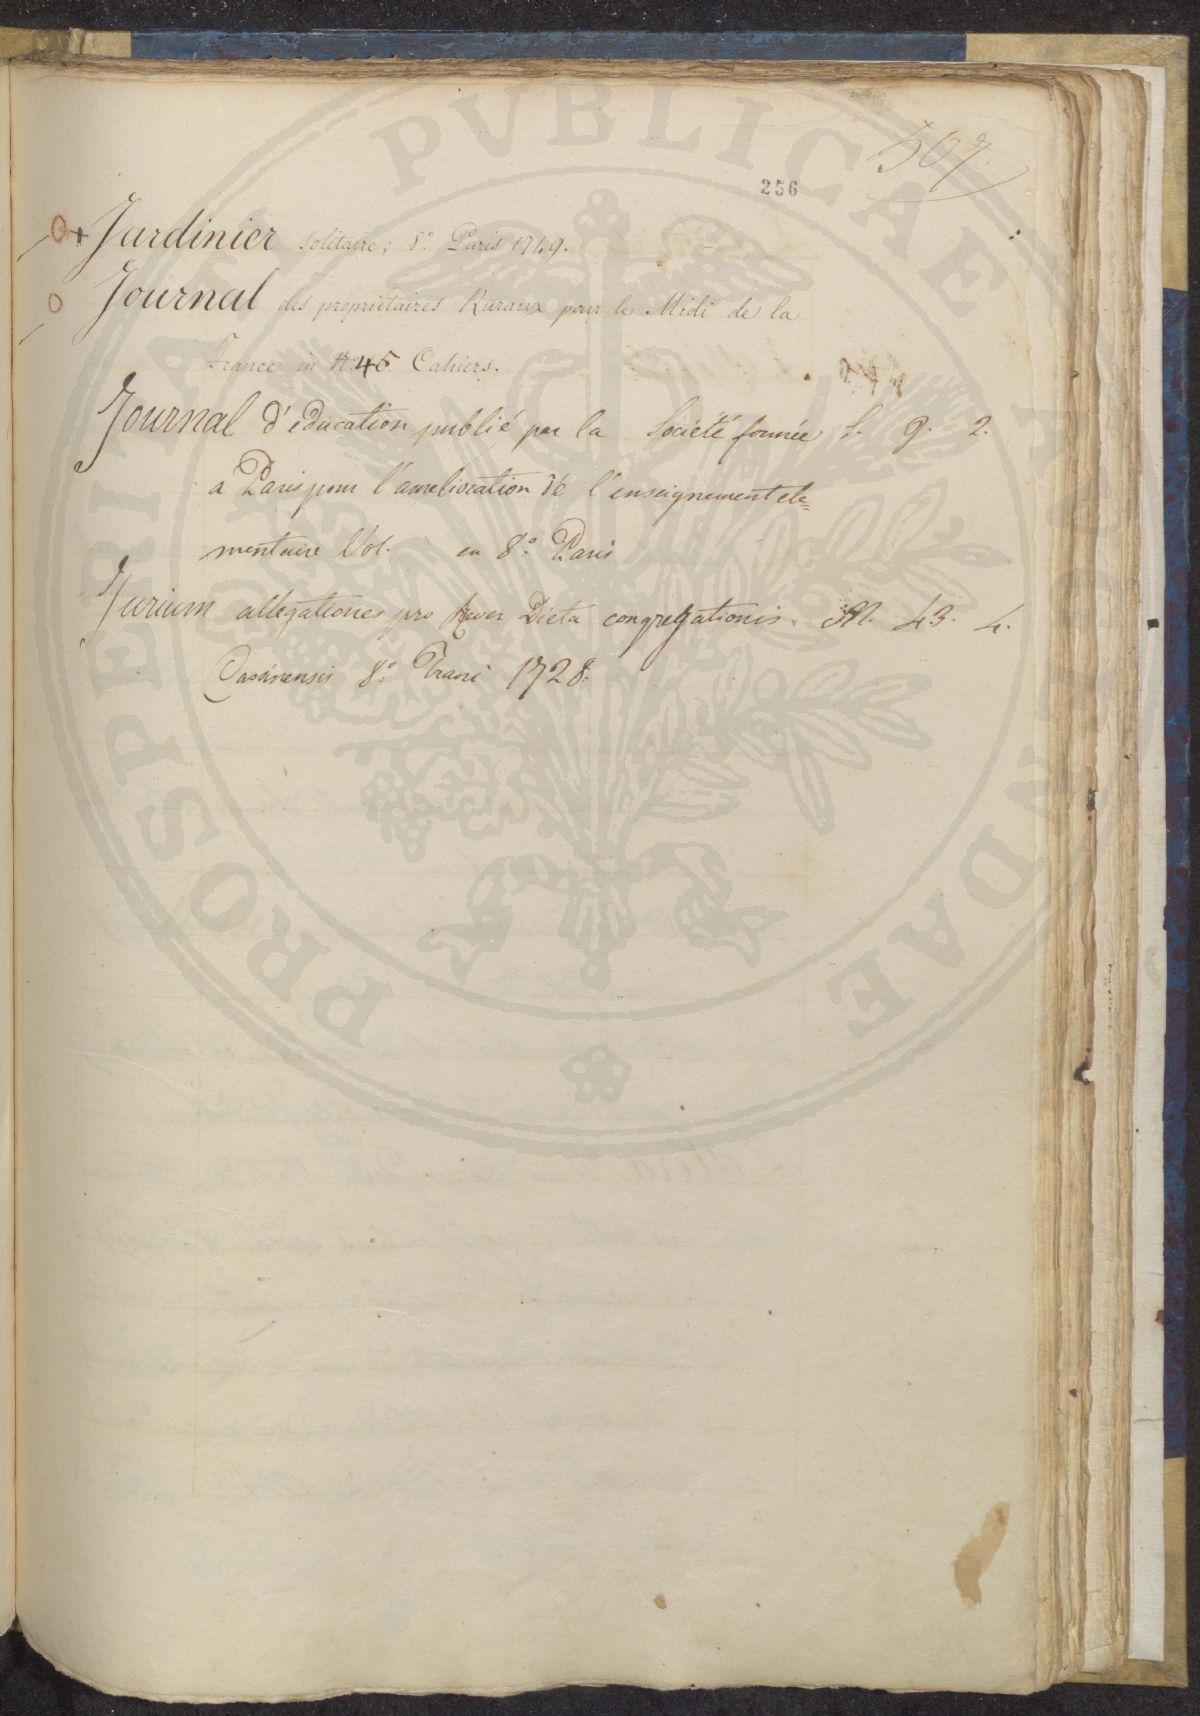 507.
256
Jardinier solitaire; 8.° Paris 1749.
Journal des proprietaires Ruraux pour le Midi de la
France in 45 Cahiers.
Journal d'éducation publié par la Societé formée S. 9. 2.
a Paris pour l'amelioration de l'enseignement ele=
mentaire Vol. en 8.° Paris
Jurium allegationes pro Dicta congregationis. M. 43. 4.
Casinensis 8.° Trani 1728.
PROSPERITATI PVBLICAE AVGENDAE